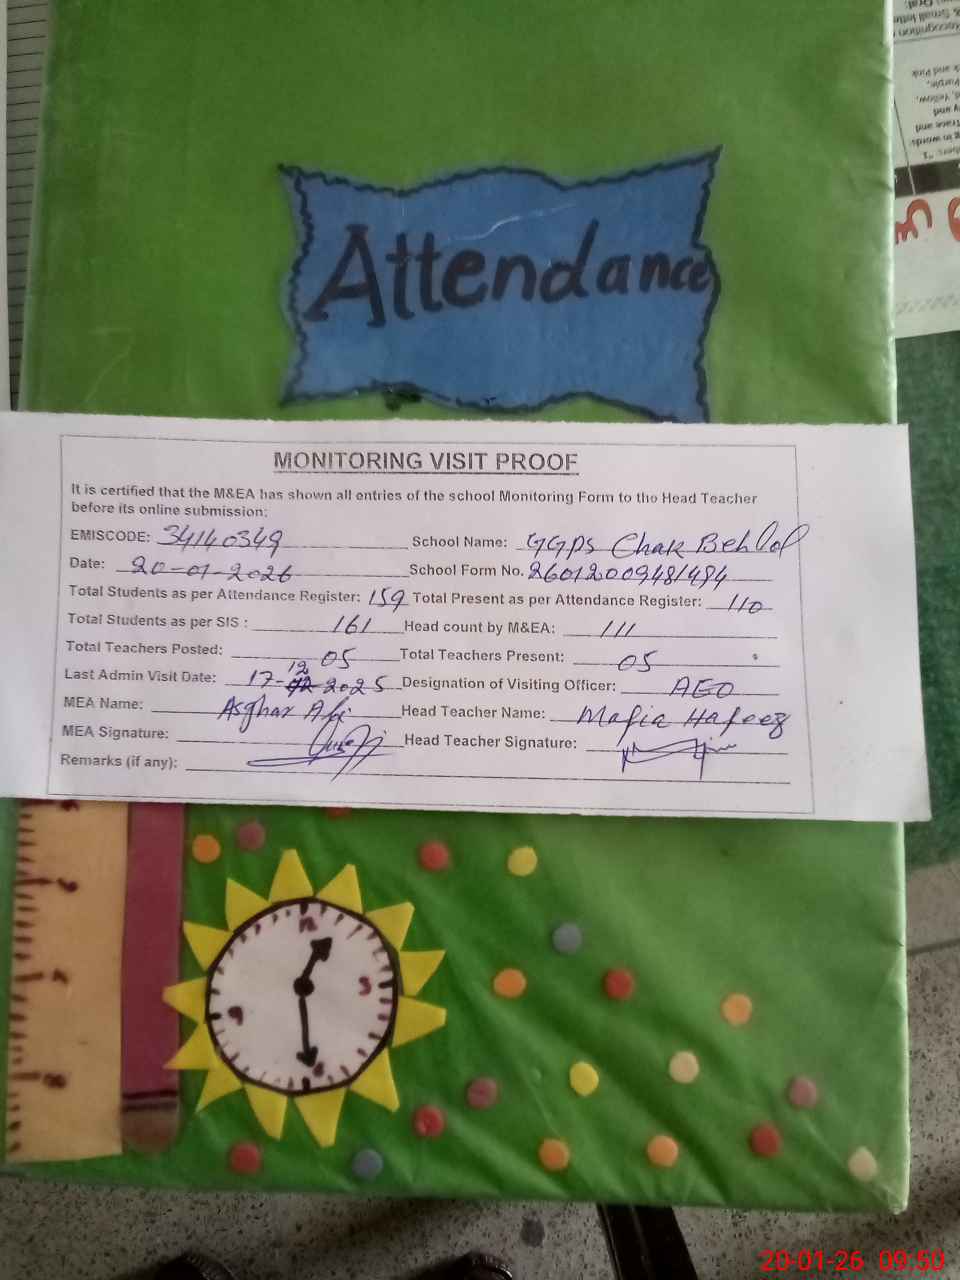 Recognition
& Small letter
Oral:
k and Pink
Purple,
d, Yellow,
y and
Trace and
g in words
Attendance
MONITORING VISIT PROOF
It is certified that the M&EA has shown all entries of the school Monitoring Form to the Head Teacher
before its online submission:
EMISCODE: 34140349 School Name: GGPS Chak Behlol
Date: 20-01-2026 School Form No. 26012009481484
Total Students as per Attendance Register: 159 Total Present as per Attendance Register: 110
Total Students as per SIS : 161 Head count by M&EA: 111
Total Teachers Posted: 05 Total Teachers Present: 05
Last Admin Visit Date: 17-12-2025 Designation of Visiting Officer: AEO
MEA Name: Asghar Ali Head Teacher Name: Mafia Hafeez
MEA Signature: Head Teacher Signature:
Remarks (if any):
12
9 3
6
20-01-26 09:50